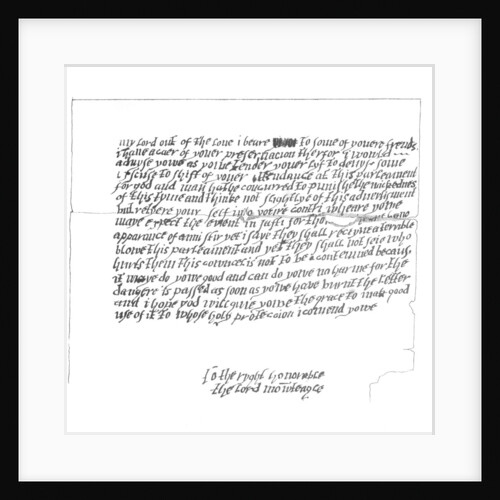 my lord out of the loue i beare to some of youere frends
i haue a caer of youer preseruacion therfor i would
aduyse yowe as yowe tender youer lyf to deuys some
excuse to shift of youer attendance at this parleament
for god and man hathe concurred to punishe the wickednes
of this tyme and thinke not slightlye of this aduertisment
but retyere youre self into youre contri wheare yowe
maye expect the euent in safti for thowghe theare be no
apparance of anni stir yet i saye they shall receyue a terrible
blowe this parleament and yet they shall not seie who
hurts them this cowncel is not to be contemned because
it maye do yowe good and can do yowe no harme for the
dangere is passed as soon as yowe haue burnt the letter
and i hope god will giue yowe the grace to mak good
use of it to whose holy proteccion i comend yowe
To the ryght honorable
the lord mowteagle